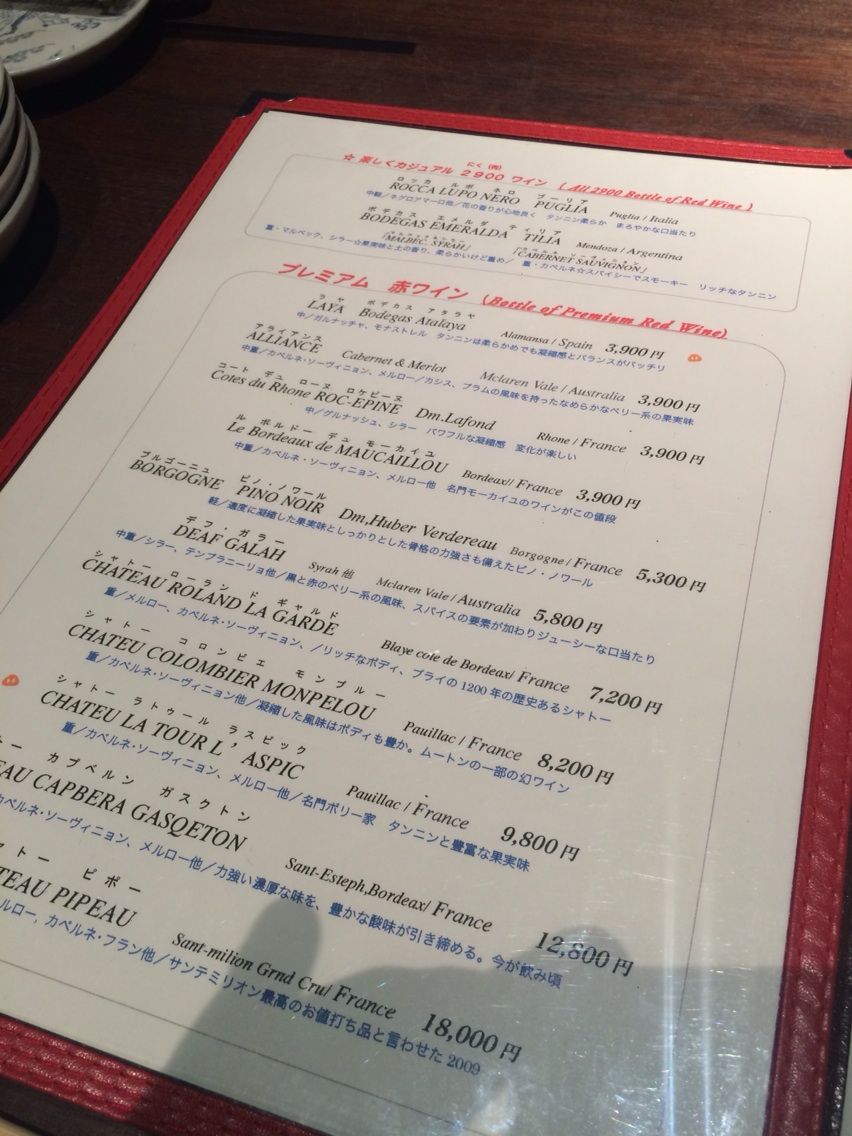 にく (肉)
☆ 楽しくカジュアル 2900 ワイン ( All 2900 Bottle of Red Wine )
ロッカ ルポ ネロ プーリア
ROCCA LUPO NERO PUGLIA Puglia / Italia
中軽/ネグロアマーロ他/花の香りが心地良く タンニン柔らか まろやかな口当たり
ボデカス エメルダ ティリア
BODEGAS EMERALDA TILIA Mendoza / Argentina
「MALBEC, SYRAH」 「CABERNET SAUVIGNON」
重・マルベック、シラー☆果実味と土の香り、柔らかいけど重め/ 重・カベルネ☆スパイシーでスモーキー リッチなタンニン
プレミアム 赤ワイン (Bottle of Premium Red Wine)
ラヤ ボデカス アタラヤ
LAYA Bodegas Atalaya Alamansa / Spain 3,900円
中/ガルナッチャ、モナストレル タンニンは柔らかめでも凝縮感とバランスがバッチリ
アライアンス
ALLIANCE Cabernet & Merlot Mclaren Vale / Australia 3,900円
中重/カベルネ・ソーヴィニョン、メルロー/カシス、プラムの風味を持ったなめらかなベリー系の果実味
コート デュ ローヌ ロケピーヌ
Cotes du Rhone ROC-EPINE Dm.Lafond Rhone / France 3,900円
中/グルナッシュ、シラー パワフルな凝縮感 変化が楽しい
ル ボルドー デュ モーカイユ
Le Bordeaux de MAUCAILLOU Bordeax// France 3,900円
中重/カベルネ・ソーヴィニョン、メルロー他 名門モーカイユのワインがこの値段
ブルゴーニュ ピノ・ノワール
BORGOGNE PINO NOIR Dm,Huber Verdereau Borgogne / France 5,300円
軽/適度に凝縮した果実味としっかりとした骨格の力強さも備えたピノ・ノワール
デフ・ガラー
DEAF GALAH Syrah 他 Mclaren Vale / Australia 5,800円
中重/シラー、テンプラニーリョ他/黒と赤のベリー系の風味、スパイスの要素が加わりジューシーな口当たり
シャトー ローラン ド ギャルド
CHATEAU ROLAND LA GARDE Blaye coie de Bordeax/ France 7,200円
重/メルロー、カベルネ・ソーヴィニョン、/リッチなボディ、ブライの1200年の歴史あるシャトー
シャトー コロンビエ モンプルー
CHATEU COLOMBIER MONPELOU Pauillac / France 8,200円
重/カベルネ・ソーヴィニョン他/凝縮した風味はボディも豊か。ムートンの一部の幻ワイン
シャトー ラトゥール ラスピック
CHATEU LA TOUR L'ASPIC Pauillac / France 9,800円
重/カベルネ・ソーヴィニョン、メルロー他/名門ポリー家 タンニンと豊富な果実味
トー カプベルン ガスクトン
EAU CAPBERA GASQETON Sant-Esteph,Bordeax/ France 12,800円
カベルネ・ソーヴィニョン、メルロー他/力強い濃厚な味を、豊かな酸味が引き締める。今が飲み頃
ャトー ピポー
TEAU PIPEAU Sant-milion Grnd Cru/ France 18,000円
メルロー, カベルネ・フラン他/サンテミリオン最高のお値打ち品と言わせた 2009